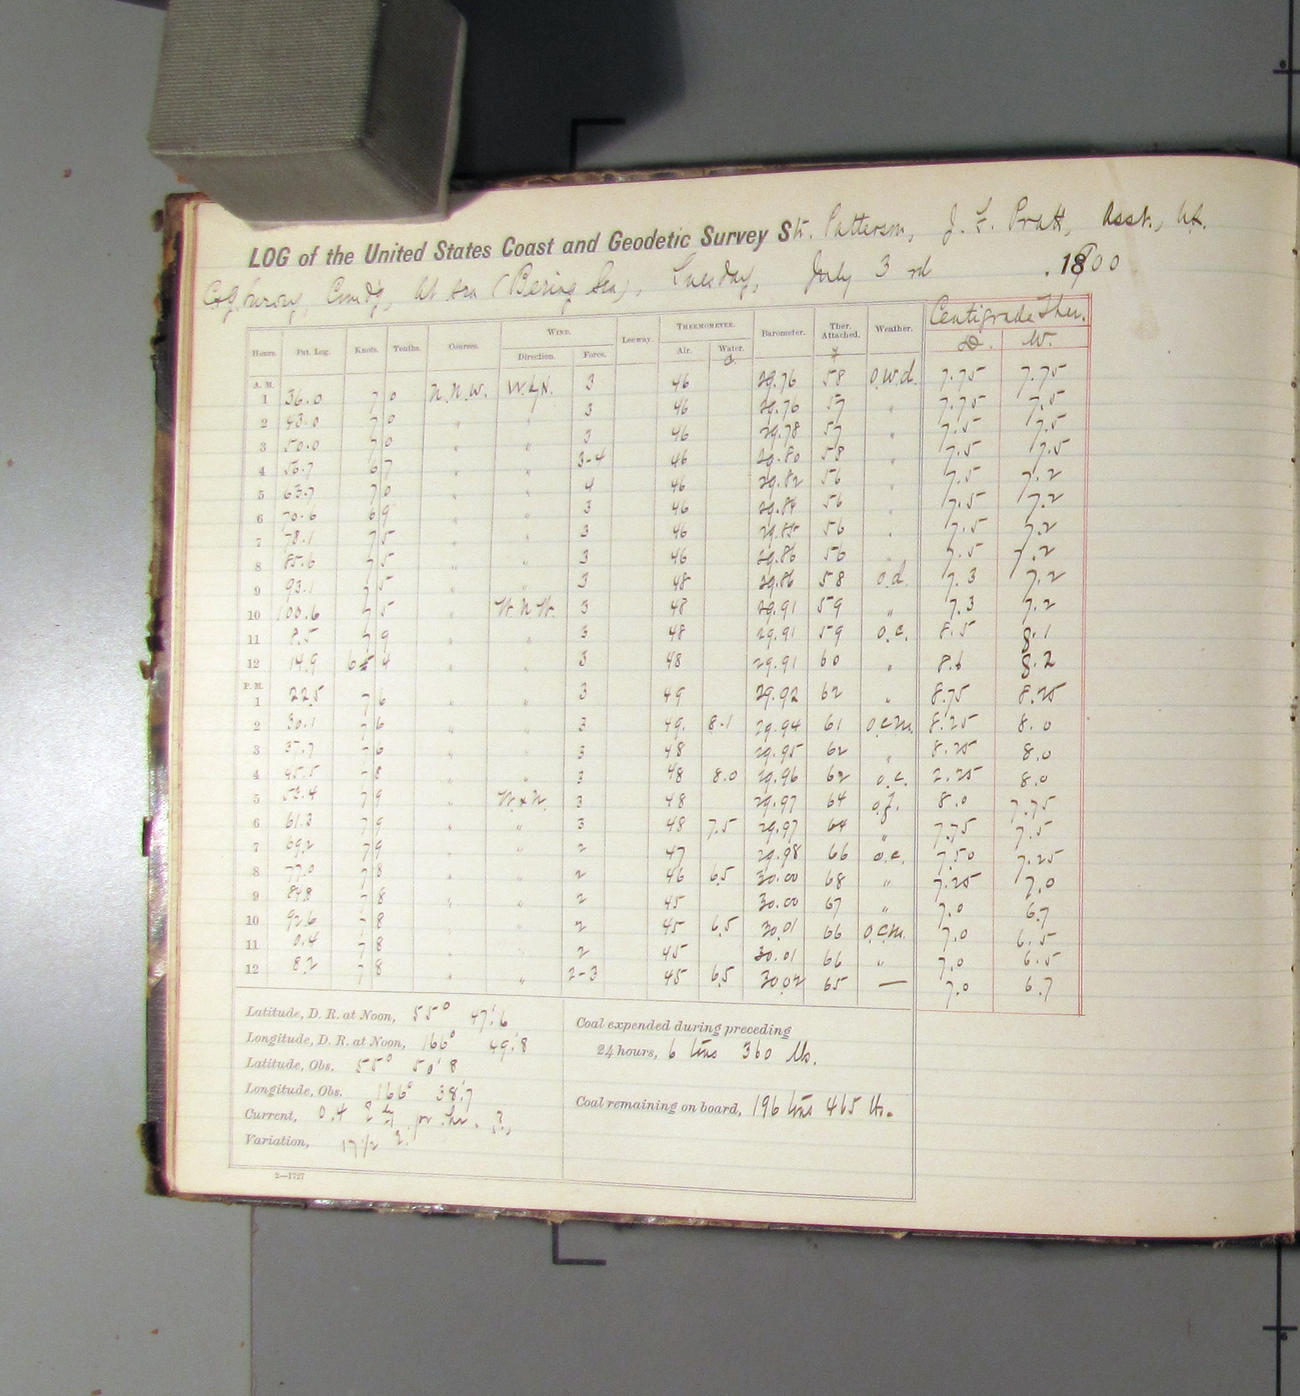 LOG of the United States Coast and Geodetic Survey Str. Patterson, J. F. Pratt, Asst., U.S.
C&G Survey, Comdg, At sea (Bering Sea), Tuesday, July 3rd, 1900
Centigrade Ther.
Hours. Pat. Log. Knots. Tenths. Courses. WIND. Direction. Force. Leeway. THERMOMETER. Air. Water. Barometer. Ther. Attached. Weather. D. W.
A. M.
1 36.0 7 0 N.N.W. W.b.N. 3 46 29.76 58 o.w.d. 7.75 7.75
2 43.0 7 0 " " 3 46 29.76 57 " 7.75 7.5
3 50.0 7 0 " " 3 46 29.78 57 " 7.5 7.5
4 56.7 6 7 " " 3-4 46 29.80 58 " 7.5 7.5
5 63.7 7 0 " " 4 46 29.82 56 " 7.5 7.2
6 70.6 6 9 " " 3 46 29.84 56 " 7.5 7.2
7 78.1 7 5 " " 3 46 29.85 56 " 7.5 7.2
8 85.6 7 5 " " 3 46 29.86 56 " 7.5 7.2
9 93.1 7 5 " " 3 48 29.86 58 o.d. 7.3 7.2
10 100.6 7 5 " W.N.W. 3 48 29.91 59 " 7.3 7.2
11 8.5 7 9 " " 3 48 29.91 59 o.c. 8.5 8.1
12 14.9 6 4 " " 3 48 29.91 60 " 8.6 8.2
P. M.
1 22.5 7 6 " " 3 49 29.92 62 " 8.75 8.25
2 30.1 7 6 " " 3 49. 8.1 29.94 61 o.c.m. 8.25 8.0
3 37.7 7 6 " " 3 48 29.95 62 " 8.25 8.0
4 45.5 7 8 " " 3 48 8.0 29.96 62 o.c. 2.25 8.0
5 53.4 7 9 " W.xN. 3 48 29.97 64 o.f. 8.0 7.75
6 61.3 7 9 " " 3 48 7.5 29.97 64 " 7.75 7.5
7 69.2 7 9 " " 2 47 29.98 66 o.c. 7.50 7.25
8 77.0 7 8 " " 2 46 6.5 30.00 68 " 7.25 7.0
9 84.8 7 8 " " 2 45 30.00 67 " 7.0 6.7
10 92.6 7 8 " " 2 45 6.5 30.01 66 o.c.m. 7.0 6.5
11 0.4 7 8 " " 2 45 30.01 66 " 7.0 6.5
12 8.2 7 8 " " 2-3 45 6.5 30.02 65 — 7.0 6.7
Latitude, D. R. at Noon, 55° 47'.6
Longitude, D. R. at Noon, 166° 49'.8
Latitude, Obs. 55° 50'.8
Longitude, Obs. 166° 38'.7
Current, 0.4 pr. hr.
Variation, 17 1/2
2—1727
Coal expended during preceding
24 hours, 6 tons 360 lbs.
Coal remaining on board, 196 tons 465 lbs.